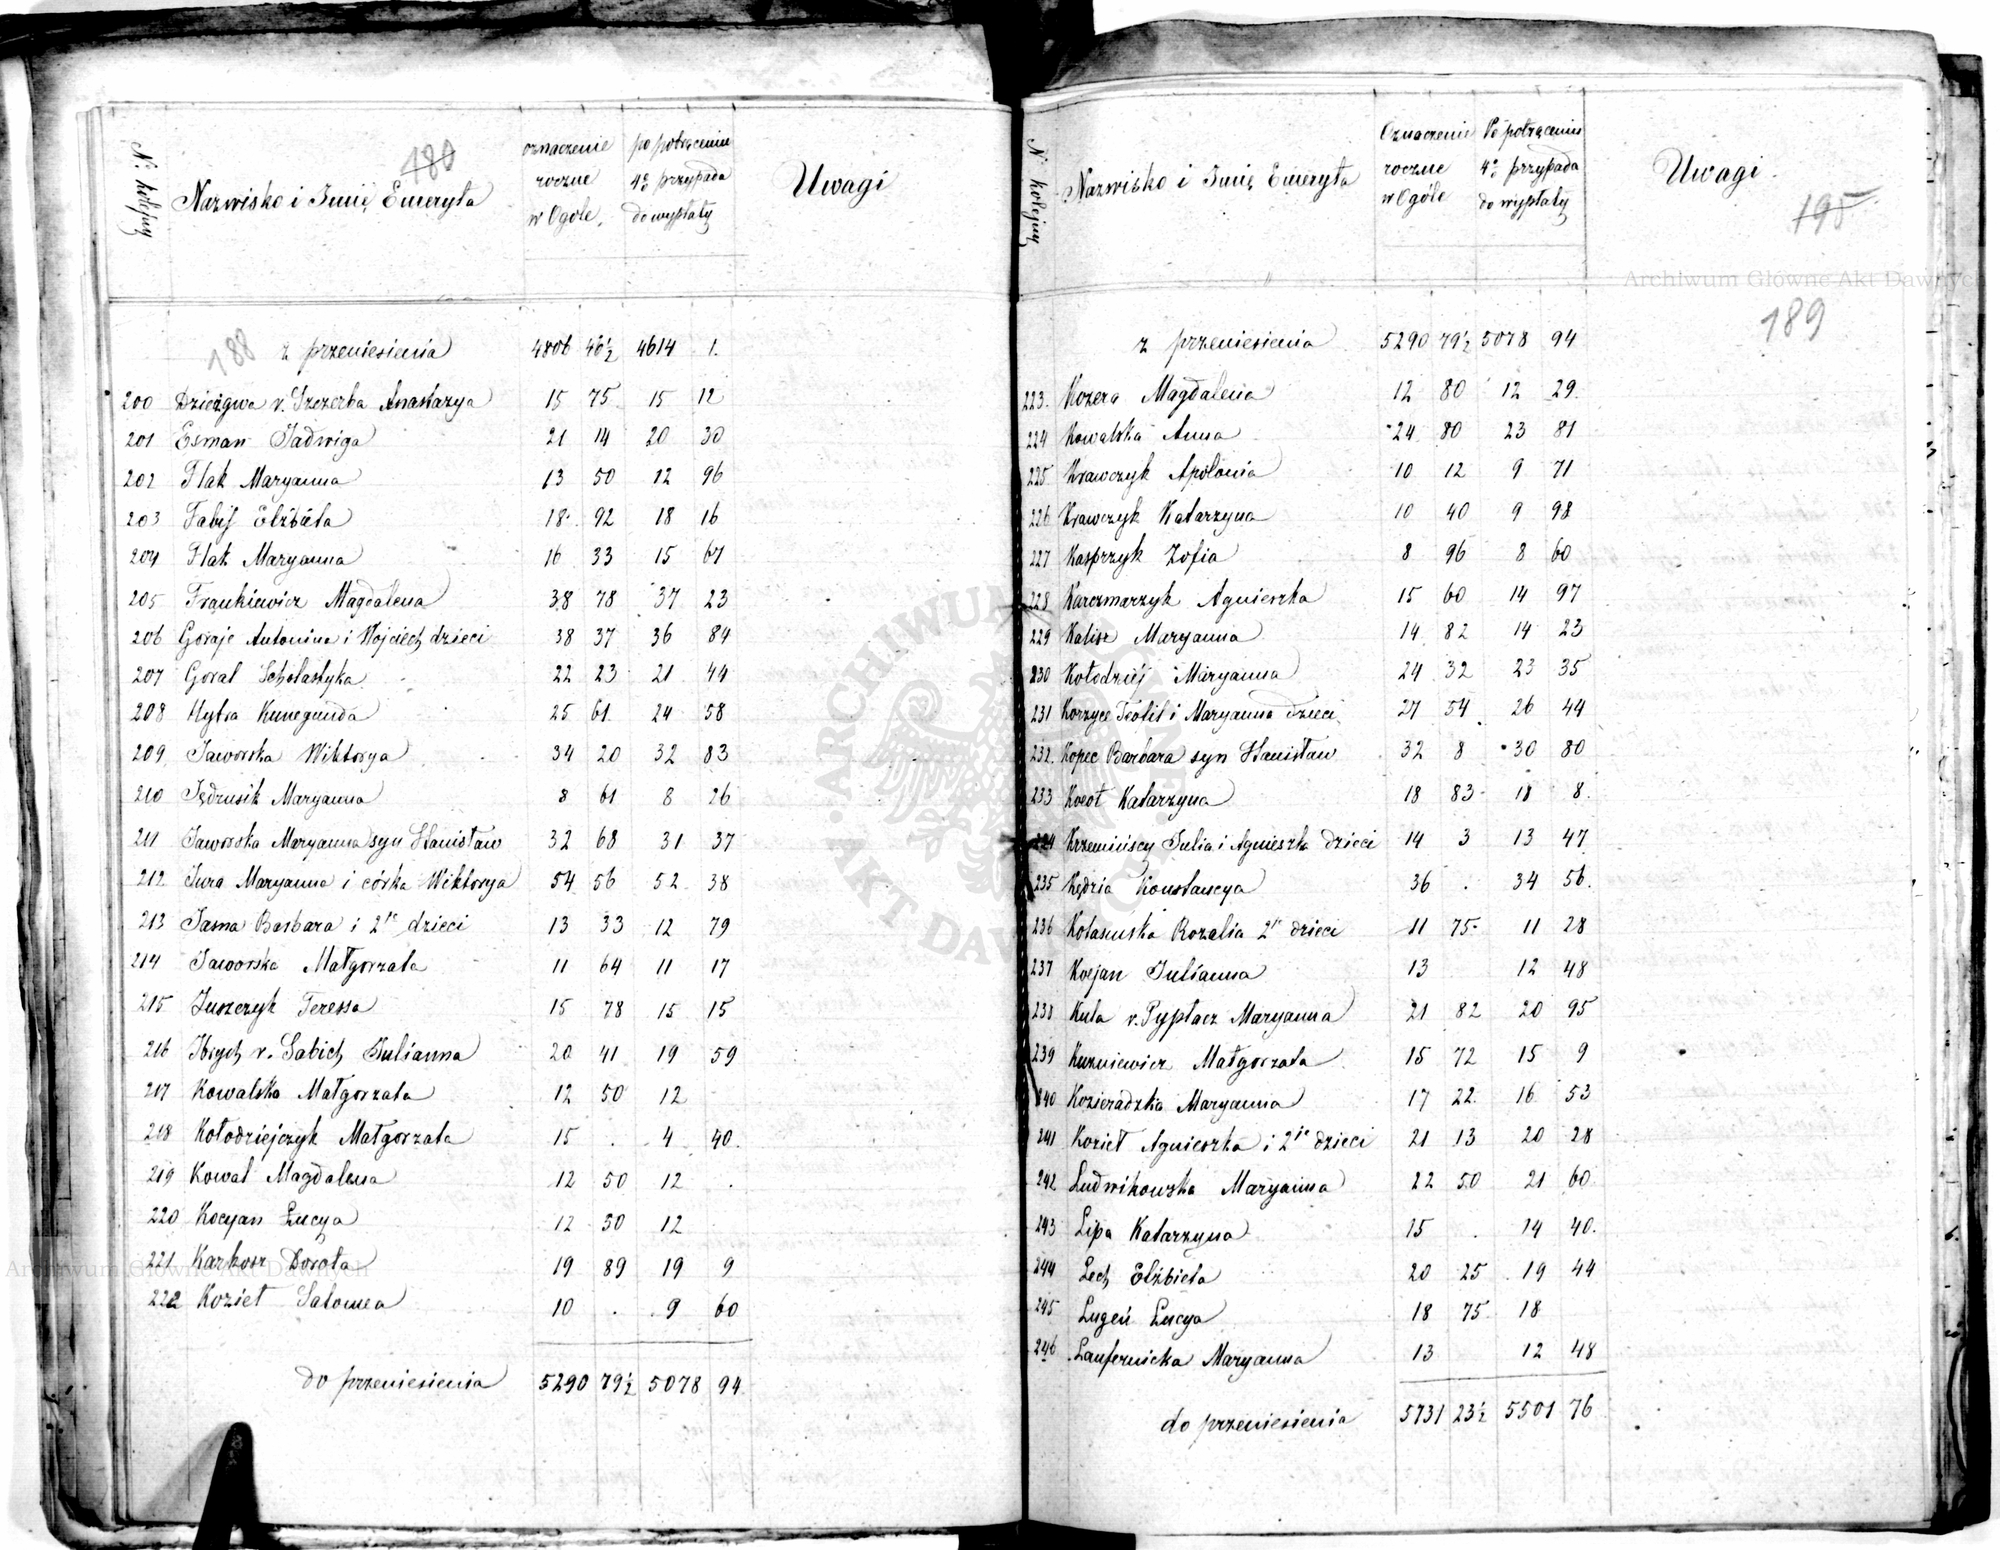 180
N: kolejny
Nazwisko i Imię Emeryta
oznaczenie roczne w Ogóle
po potrąceniu 4% przypada do wypłaty
Uwagi
188
z przeniesienia 4806 46½ 4614 1.
200 Dzieżgwa v. Szczerba Anastazya 15 75 15 12
201 Esman Jadwiga 21 14 20 30
202 Flak Maryanna 13 50 12 96
203 Fabiś Elżbieta 18 92 18 16
204 Flak Maryanna 16 33 15 67
205 Frankiewicz Magdalena 38 78 37 23
206 Goraje Antonina i Wojciech dzieci 38 37 36 84
207 Goral Scholastyka 22 23 21 44
208 Hytra Kunegunda 25 61 24 58
209 Jaworska Wiktorya 34 20 32 83
210 Jędrusik Maryanna 8 61 8 26
211 Jaworska Maryanna syn Stanisław 32 68 31 37
212 Jura Maryanna i córka Wiktorya 54 56 52 38
213 Jasna Barbara i 2je dzieci 13 33 12 79
214 Jaworska Małgorzata 11 64 11 17
215 Juszczyk Teressa 15 78 15 15
216 Jbrych v. Sabich Julianna 20 41 19 59
217 Kowalska Małgorzata 12 50 12
218 Kołodziejczyk Małgorzata 15 . 4 40.
219 Kowal Magdalena 12 50 12 .
220 Kocyan Łucya 12 50 12
221 Karkosz Dorota 19 89 19 9
222 Kozieł Salomea 10 . 9 60
do przeniesienia 5290 79½ 5078 94
N: kolejny
Nazwisko i Imię Emeryta
Oznaczenie roczne w Ogóle
Po potrąceniu 4% przypada do wypłaty
Uwagi
195
Archiwum Główne Akt Dawnych
189
z przeniesienia 5290 79½ 5078 94
223. Kozera Magdalena 12 80 12 29
224 Kowalska Anna 24 80 23 81
225 Krawczyk Apolonia 10 12 9 71
226 Krawczyk Katarzyna 10 40 9 98
227 Kasprzyk Zofia 8 96 8 60
228 Karczmarzyk Agnieszka 15 60 14 97
229 Kalisz Maryanna 14 82 14 23
230 Kołodziéj Maryanna 24 32 23 35
231 Korzyce Teofil i Maryanna dzieci 27 54 26 44
232. Kopeć Barbara syn Stanisław 32 8 30 80
233 Kocot Katarzyna 18 83 18 8.
234 Krzemińscy Julia i Agnieszka dzieci 14 3 13 47
235 Kędzia Konstancya 36 . 34 56.
236 Kołasińska Rozalia 2je dzieci 11 75 11 28
237 Kocjan Julianna 13 12 48
238 Kula v. Pypłacz Maryanna 21 82 20 95
239 Kuzniewicz Małgorzata 15 72 15 9
240 Kozieradzka Maryanna 17 22 16 53
241 Kozieł Agnieszka i 2je dzieci 21 13 20 28
242 Ludwikowska Maryanna 22 50 21 60
243 Lipa Katarzyna 15 . 14 40.
244 Lech Elżbieta 20 25 19 44
245 Lugeń Łucya 18 75 18
246 Lanfernicka Maryanna 13 12 48
do przeniesienia 5731 23½ 5501 76
ARCHIWUM GŁÓWNE AKT DAWNYCH
Archiwum Główne Akt Dawnych